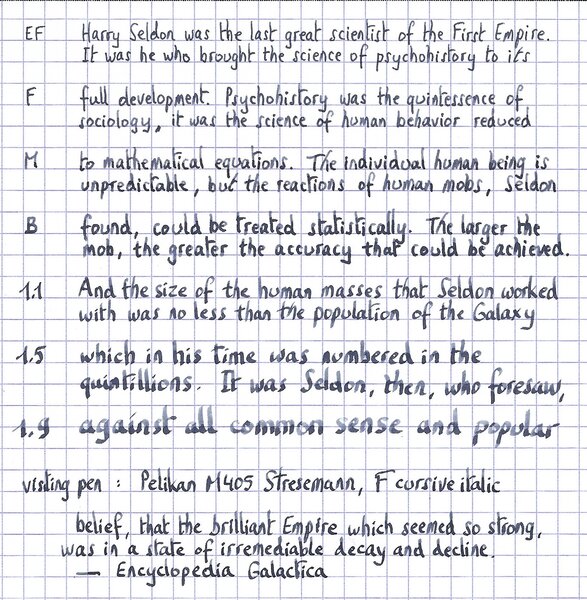 EF Harry Seldon was the last great scientist of the First Empire.
It was he who brought the science of psychohistory to its
F full development. Psychohistory was the quintessence of
sociology, it was the science of human behavior reduced
M to mathematical equations. The individual human being is
unpredictable, but the reactions of human mobs, Seldon
B found, could be treated statistically. The larger the
mob, the greater the accuracy that could be achieved.
1.1 And the size of the human masses that Seldon worked
with was no less than the population of the Galaxy
1.5 which in his time was numbered in the
quintillions. It was Seldon, then, who foresaw,
1.9 against all common sense and popular
visiting pen : Pelikan M405 Stresemann, F cursive italic
belief, that the brilliant Empire which seemed so strong,
was in a state of irremediable decay and decline.
— Encyclopedia Galactica